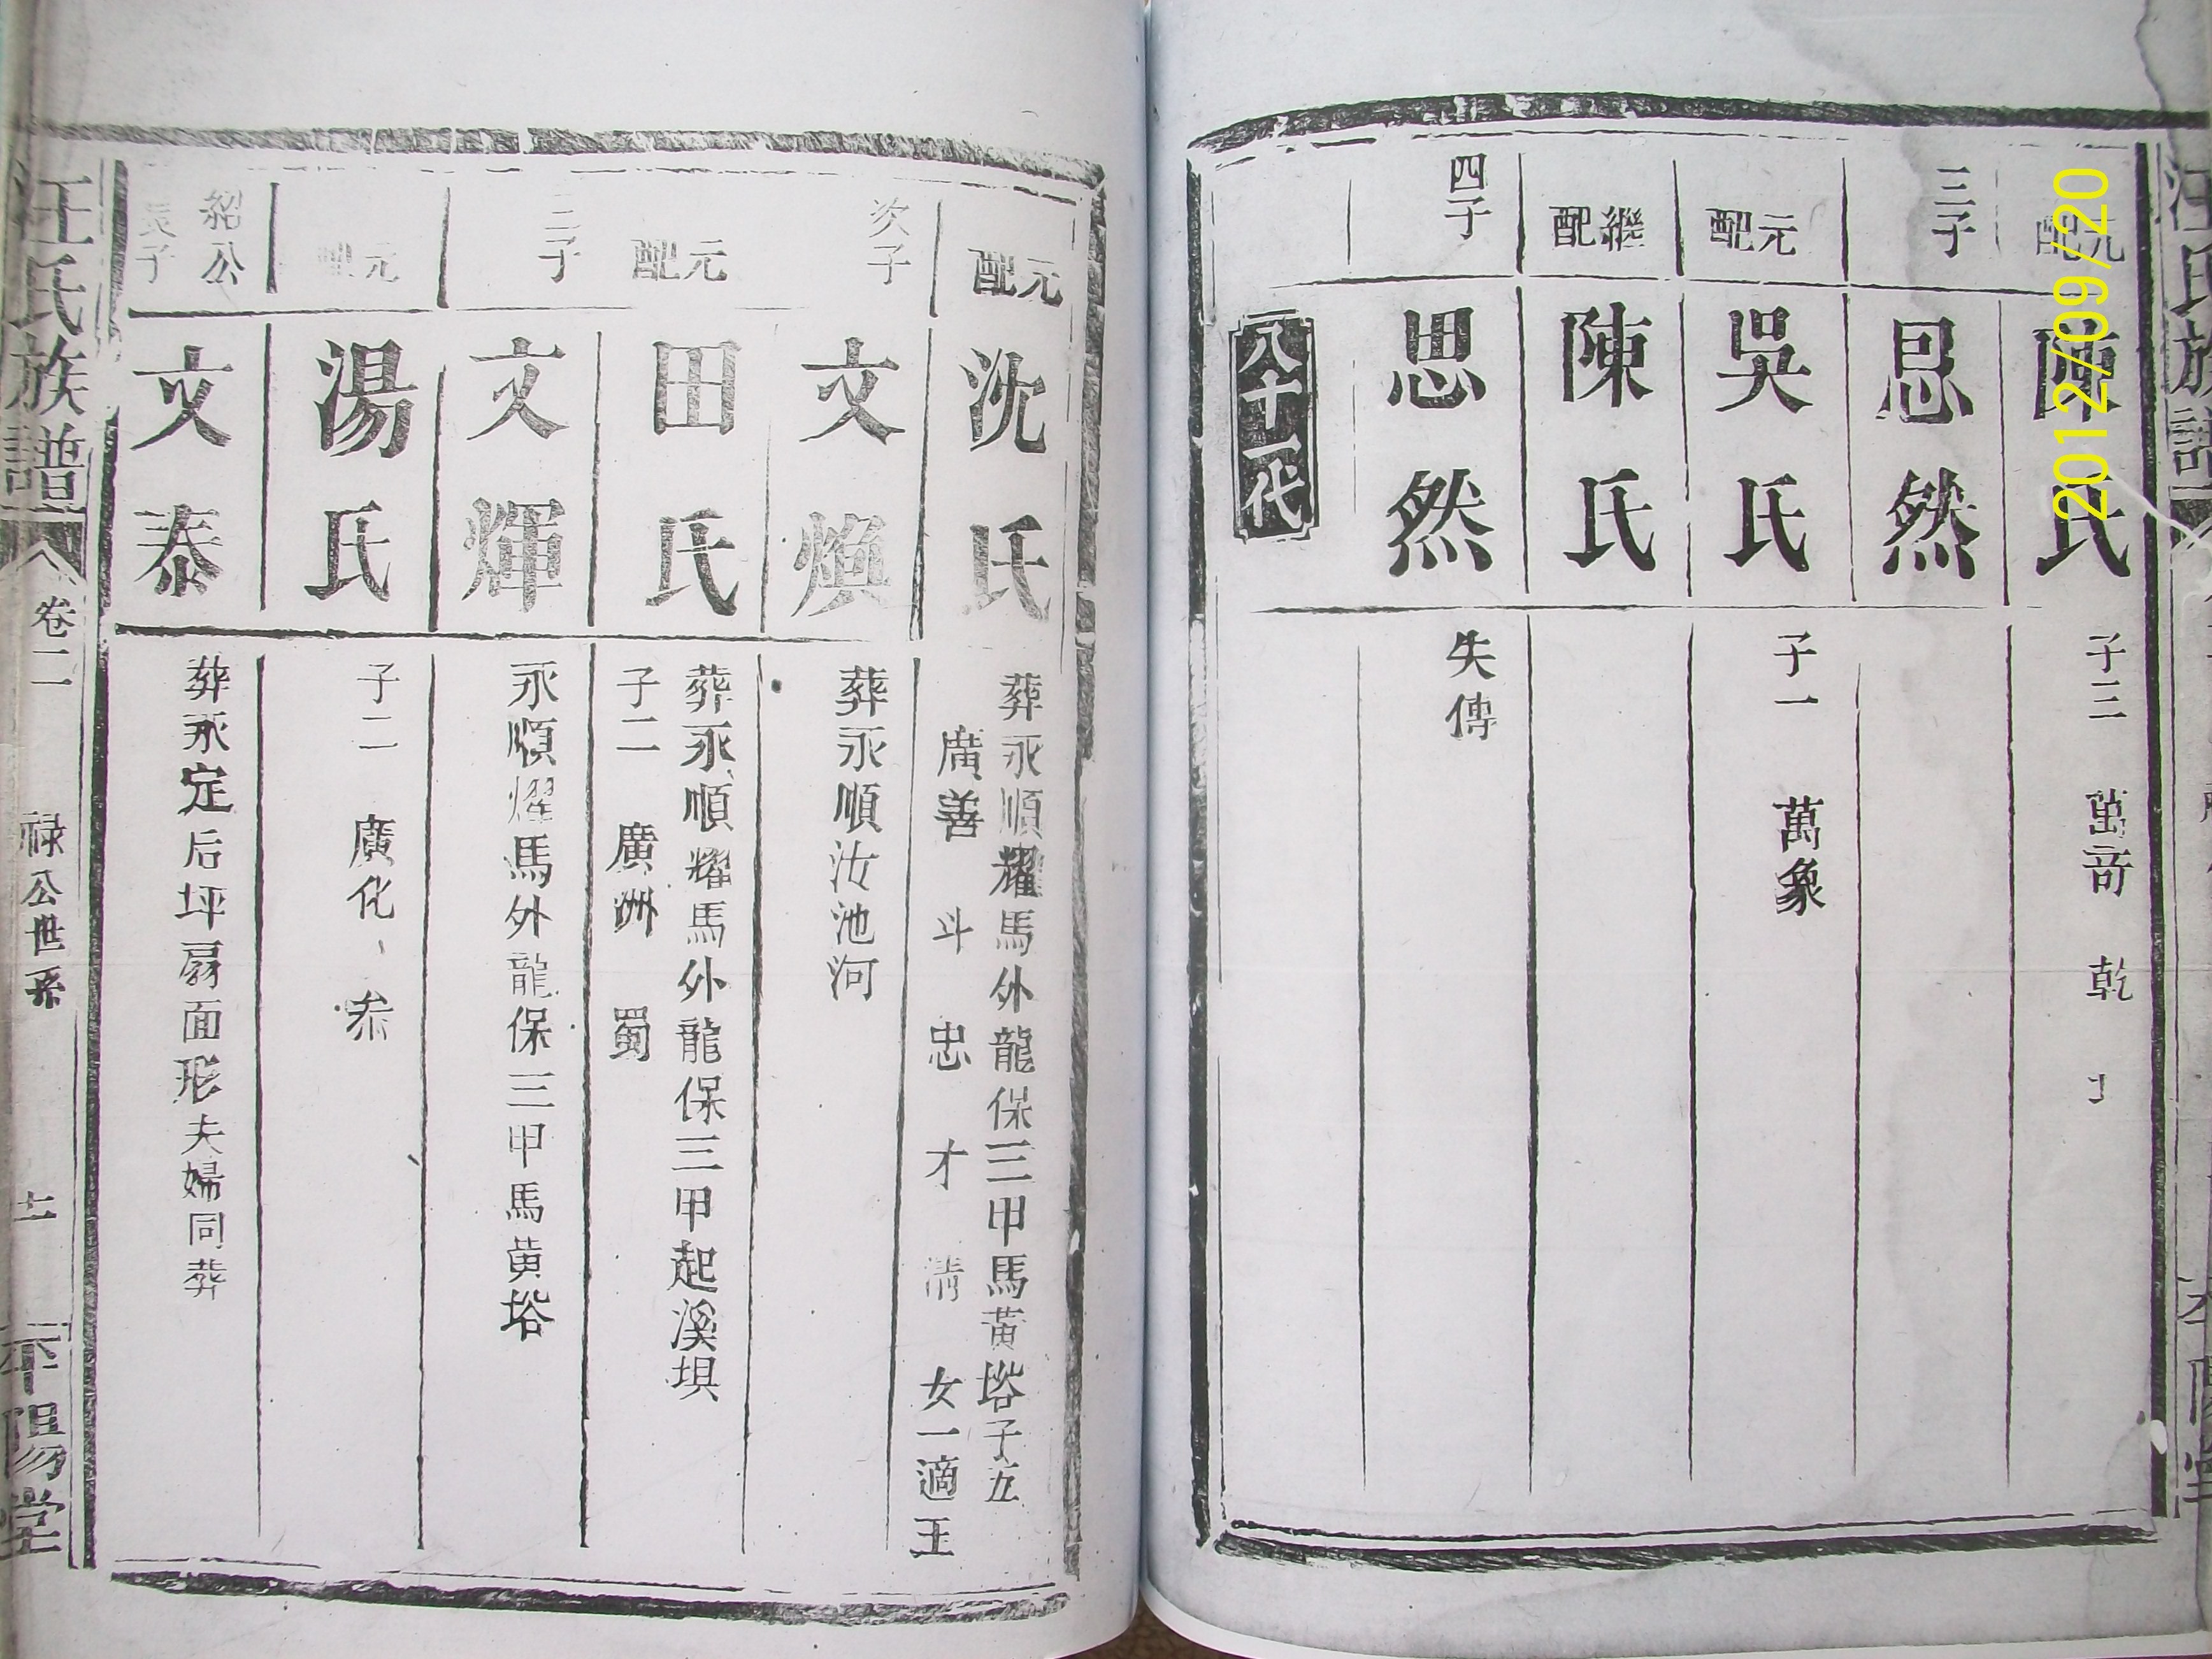 汪氏族譜
元配
陳氏
子三 萬奇 乾
三子
思然
元配
吳氏
子一 萬象
繼配
陳氏
四子
思然
失傳
八十一代
2012/09/20
元配
沈氏
葬永順耀馬外龍保三甲馬黃塔子五
廣善 斗 忠 才 清 女一適王
次子
文煥
葬永順汝池河
元配
田氏
葬永順耀馬外龍保三甲起溪垻
子二 廣洲 蜀
三子
文輝
永順耀馬外龍保三甲馬黄塔
元配
湯氏
子二 廣化、叅
紹公
長子
文泰
葬永定后坪扇面形夫婦同葬
汪氏族譜
卷二
禄公世系
十一
平陽堂